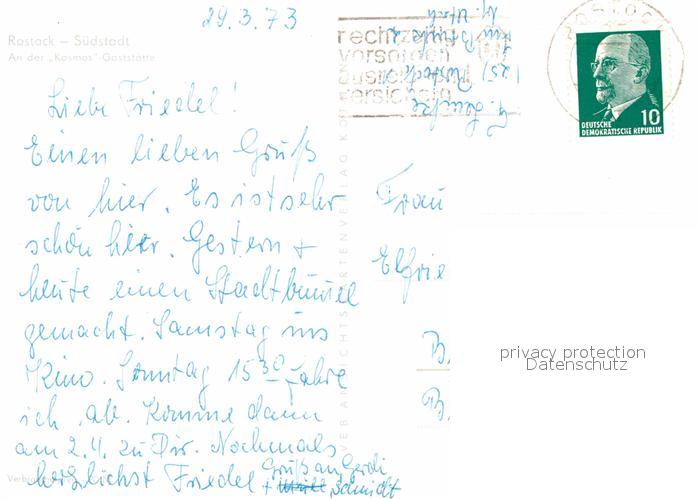 29.3.73
Rostock – Südstadt
An der „Kosmos"-Gaststätte
Liebe Friedel!
Einen lieben Gruß
von hier. Es ist sehr
schön hier. Gestern +
heute einen Stadtbummel
gemacht. Samstag ins
Kino. Sonntag 15 30 fahre
ich ab. Komme dann
am 2.4. zu Dir. Nochmals
herzlichst Friedel
Gruß an Gerdi
+ Schmidt
rechtzeitig
vorsorgen
versichern
Rostock
DEUTSCHE
DEMOKRATISCHE REPUBLIK
10
Frau
Elfrie
B.
B.
privacy protection
Datenschutz